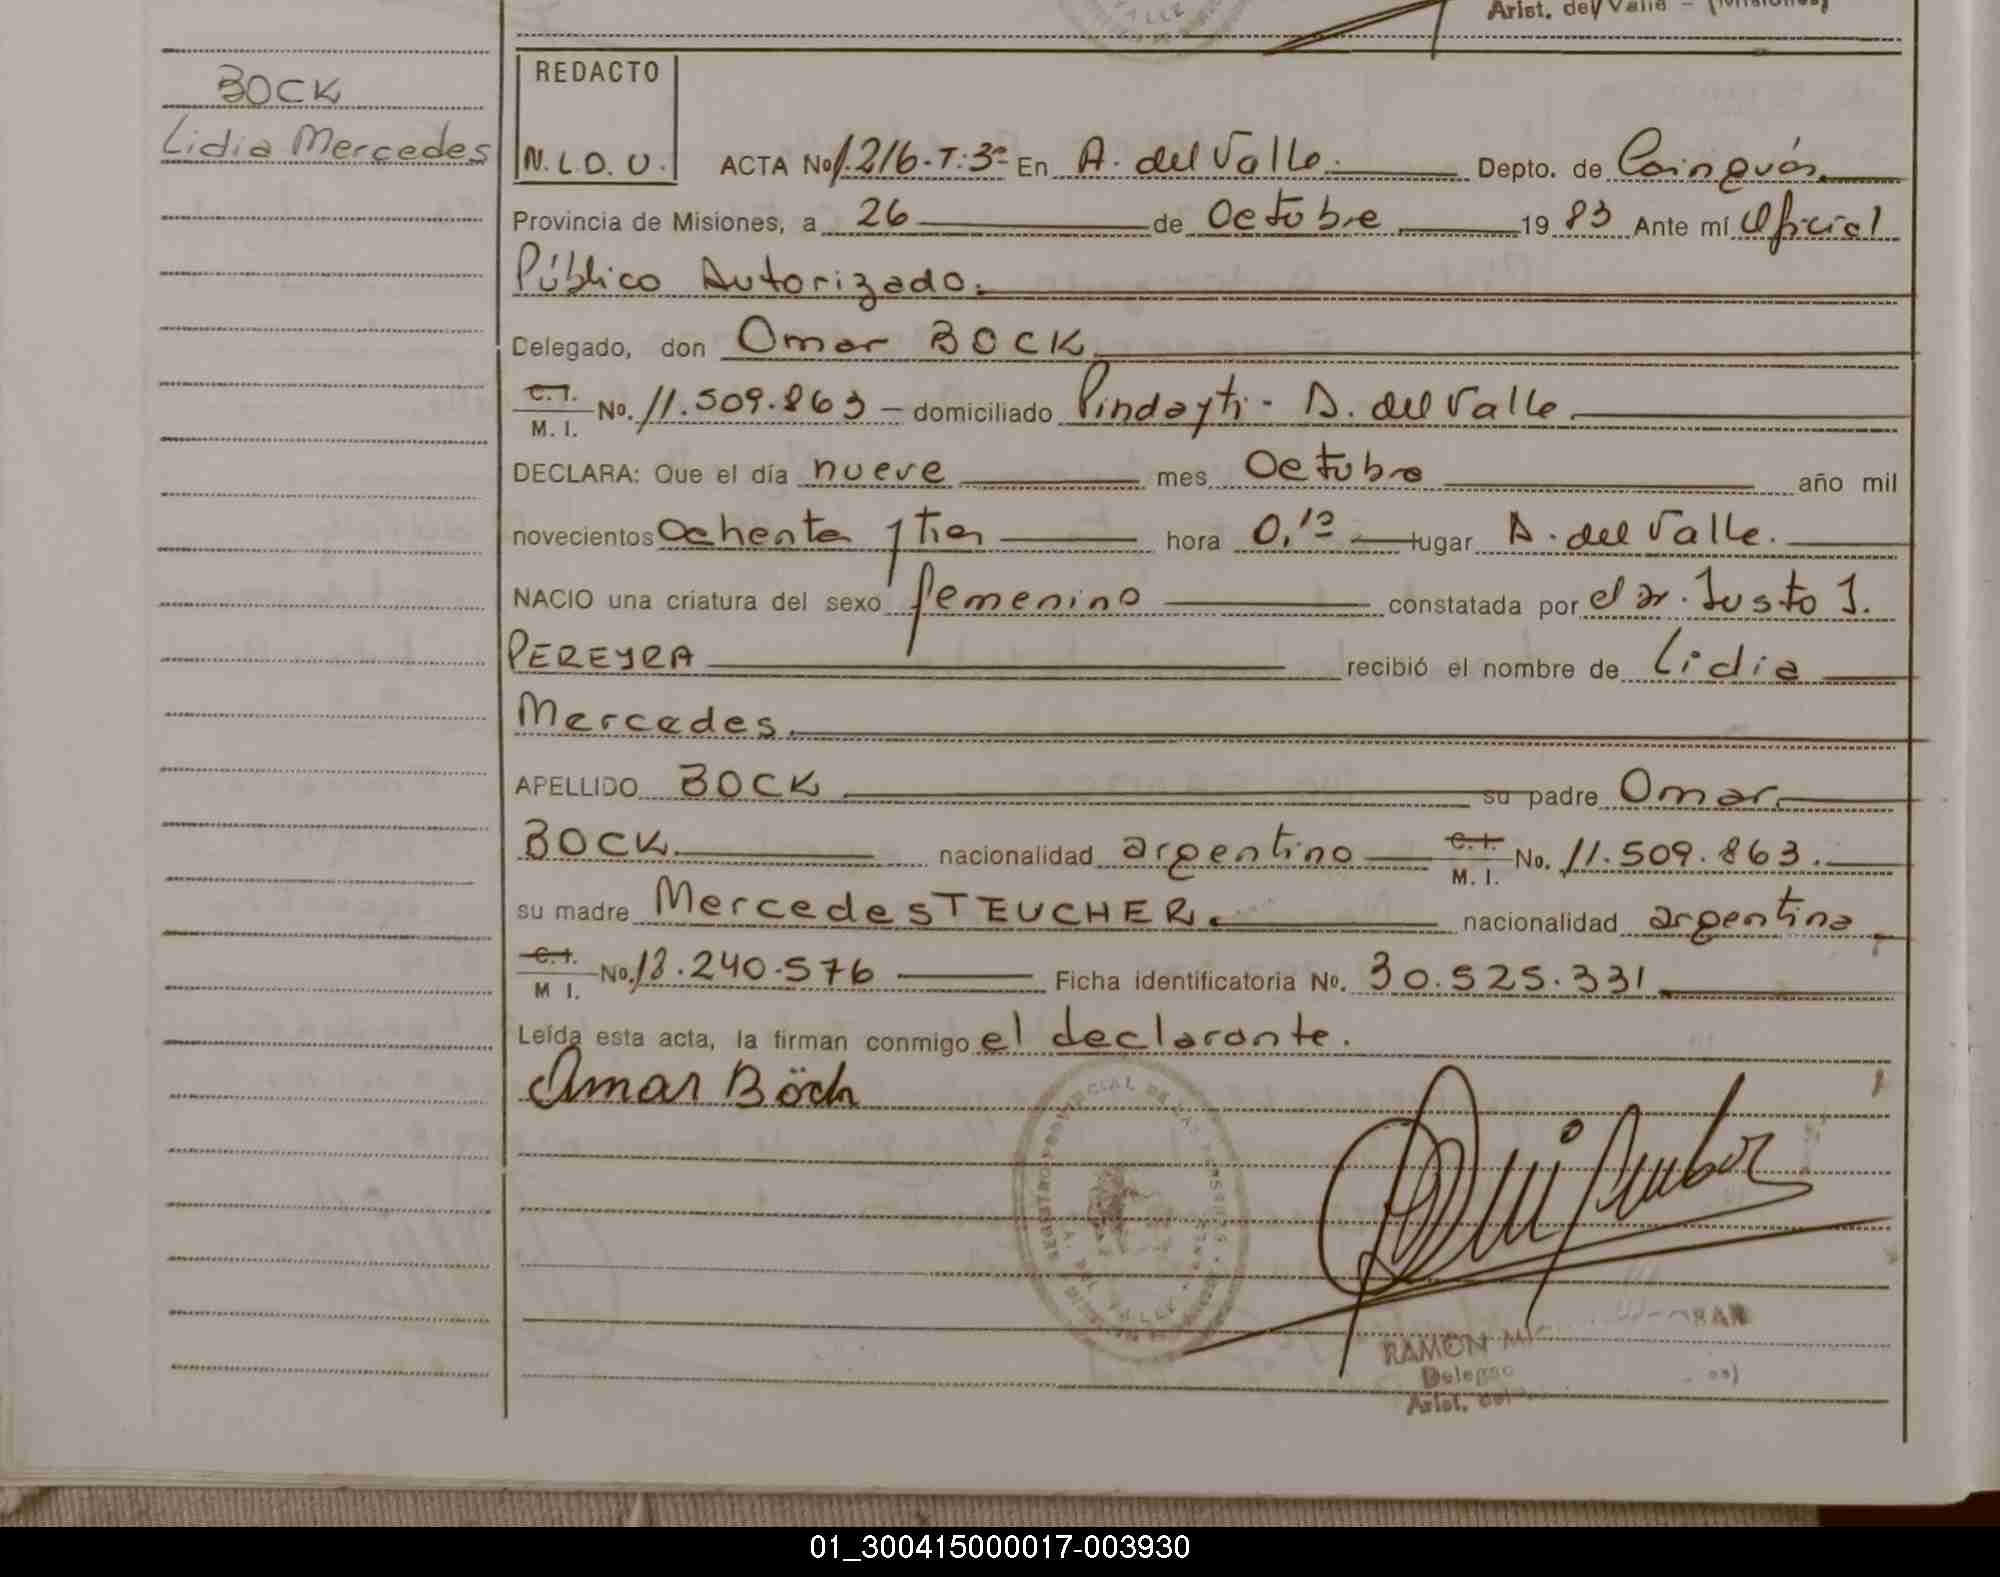 Arist. del Valle - (Misiones)
BOCK
Lidia Mercedes
REDACTO
N.L.D.U.
ACTA No 1.216-T:3º En A. del Valle. Depto. de Cainguás.
Provincia de Misiones, a 26 de Octubre 1983 Ante mí Oficial
Público Autorizado.
Delegado, don Omar BOCK
C.I. M. I. No. 11.509.863 - domiciliado Pindayti - A. del Valle
DECLARA: Que el día nueve mes Octubre año mil
novecientos Ochenta y tres hora 0,10 lugar A. del Valle.
NACIO una criatura del sexo femenino constatada por el Dr. Justo J.
PEREYRA recibió el nombre de Lidia
Mercedes.
APELLIDO BOCK su padre Omar
BOCK. nacionalidad argentino C.I. M. I. No. 11.509.863.
su madre Mercedes TEUCHER. nacionalidad argentina
C.I. M I. No. 18.240.576 Ficha identificatoria No. 30.525.331
Leída esta acta, la firman conmigo el declarante.
Omar Böck
REGISTRO PROVINCIAL DE LAS PERSONAS
A. DEL VALLE
RAMON
Delegado
Arist. del
01_300415000017-003930